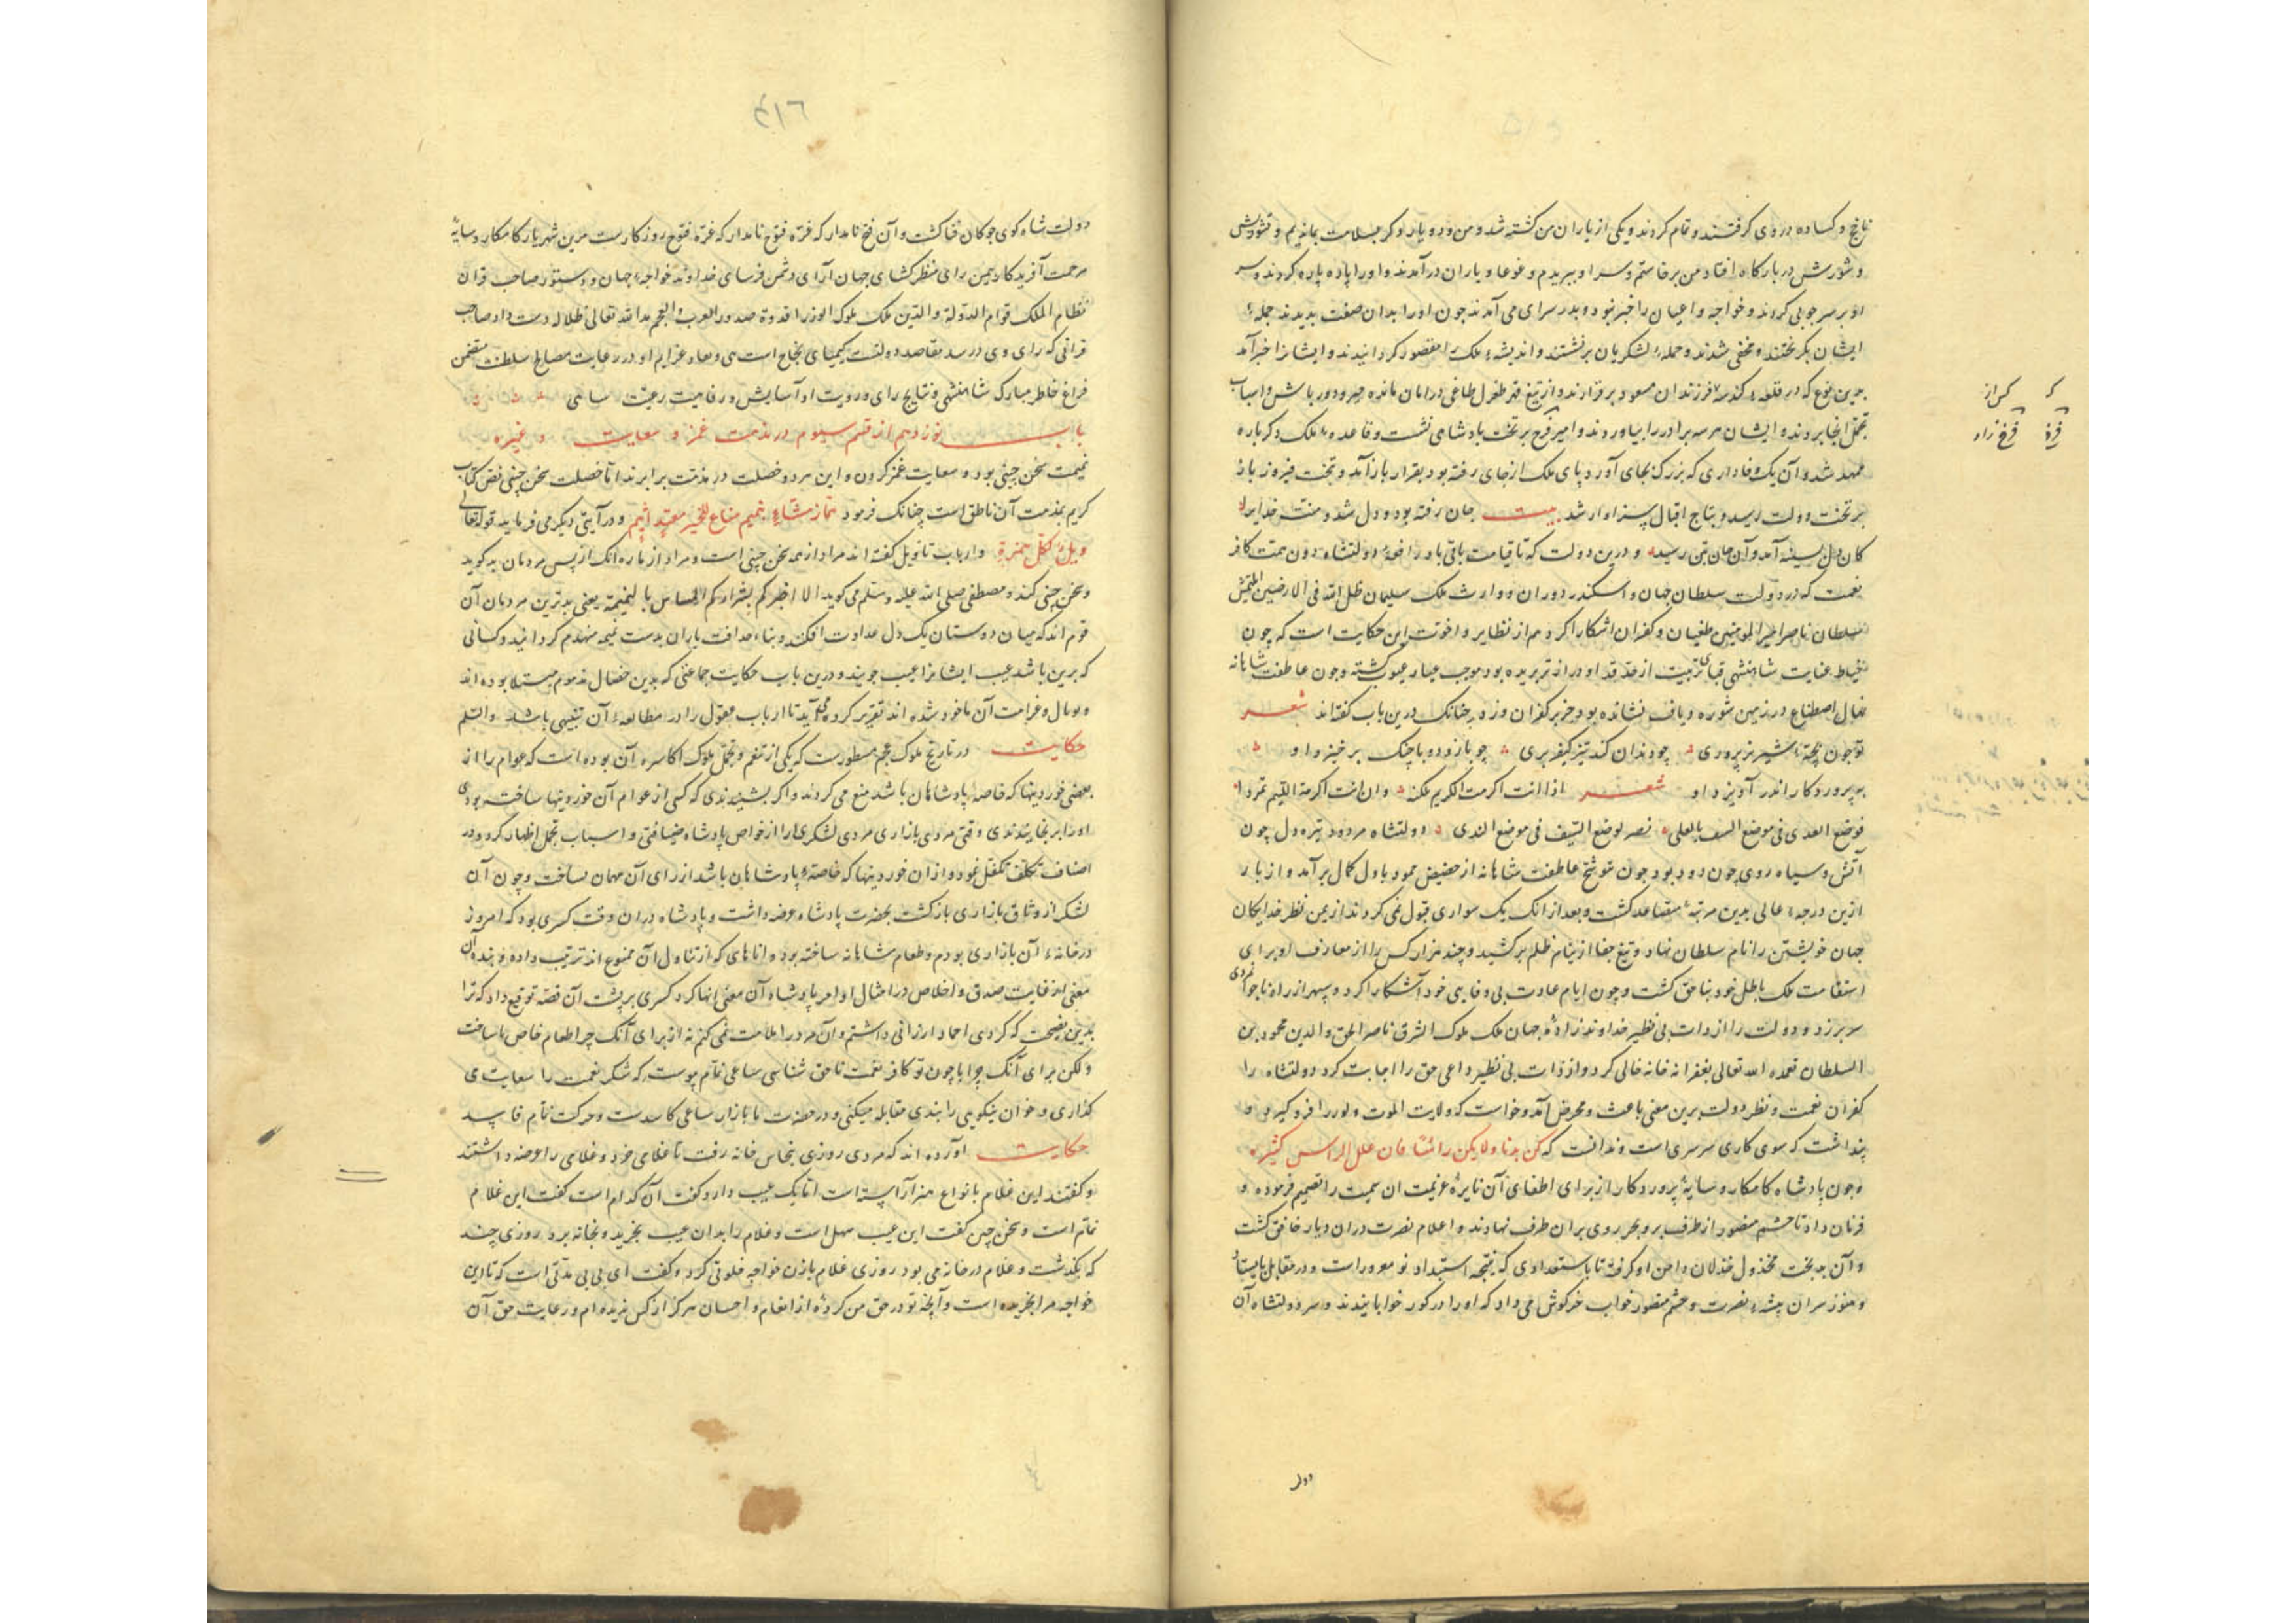 ناچخ و کساده در وی گرفتند و تمام کردند و یکی از یاران من کشته شد و من و دو یار دیگر بسلامت بماندیم و تشویش
و شورش در بارگاه افتاد من برخاستم و سر او ببریدم و غوغا و یاران در آمدند و او را پاره پاره کردند و سر
او بر سر چوبی کردند و خواجه و اعیان را خبر نبود و بدر سرای می آمدند چون او را بدان صفت بدیدند جمله
ایشان بگریختند و مخفی شدند و جمله لشکریان برنشستند و اندیشه ملک را مقصور گردانیدند و ایشانرا خبر آمد
بدین نوع که در قلعه فرزندان مسعود برقرارند و از تیغ قهر طغرل طاغی در امان مانده
تجمل آنجا بردند و ایشان هر سه برادر را بیاوردند و امیر فرخ بر تخت پادشاهی نشست و قاعده ملک دگر باره
ممهد شد و آن یک وفاداری که بزرگ بجای آورد پای ملک از جای رفته بود بقرار باز آمد و تخت فیروز باز
بر تخت دولت رسید و بتاج اقبال سزاوار شد بیت جان رفته بود و دل شد و منت خدایرا
کان دل بسینه آمد و آن جان بتن رسید و درین دولت که تا قیامت باقی باد دولتشاه دون همت کافر
نعمت که در دولت سلطان جهان و اسکندر دوران و وارث ملک سلیمان ظل الله فی الارضین التتمش
السلطان ناصر امیر المومنین طغیان و کفران آشکارا کرد هم از نظایر و اخوت این حکایت است که چون
خیاط عنایت شاهنشهی قبای تربیت از قد او دراز تر بریده بود موجب گشته و چون عاطفت شاهانه
نهال اصطناع در زمین شوره نشانده بود جز بر کفران وزد چنانک درین باب گفته اند شعر
تو چون بچه شیر نر پروری چو دندان کند تیز کیفر بری چو با زور و با چنگ برخیزد او
به پروردگار اندر آویزد او شعر اذا انت اکرمت الکریم ملکته وان انت اکرمت اللئیم تمردا
فوضع الندی فی موضع السیف بالعلی مضر کوضع السیف فی موضع الندی دولتشاه مردود تیره دل چون
آتش و سیاه روی چون دود بود چون عاطفت شاهانه از حضیض خمود باول کمال بر آمد و از بار
ازین درجه عالی بدین مرتبه متصاعد گشت و بعد از انک یک سواری قبول نمی کردند از یمن نظر خدایگان
جهان خویشتن را نام سلطان نهاد و تیغ جفا از نیام ظلم برکشید و چند هزار کس را از معارف او برای
استقامت ملک باطل خود بناحق کشت و چون ایام عادت بی وفایی خود آشکارا کرد و سپهر از راه ناجوانمردی
سر برزد و دولت را از ذات بی نظیر خداوند زاده جهان ملک ملوک الشرق ناصر الحق والدین محمود بن
السلطان تغمده الله تعالی بغفرانه خانه خالی کرد و از ذات بی نظیر داعی حق را اجابت کرد دولتشاه را
کفران نعمت و نظر دولت برین معنی باعث و محرض آمد و خواست که ولایت الموت فرو گیرد و
پنداشت که سوی کاری سرسری است و ندانست که کن ذنبا ولا یکن رأسا فان علل الراس کثیرة
و چون پادشاه کامکار و سایه پروردگار از برای اطفای آن نایره عزیمت ان سمت را تصمیم فرمود و
فرمان داد تا حشم منصور از طرف بر و بحر روی بران طرف نهادند و اعلام نصرت دران دیار خافق گشت
و آن بدبخت مخذول خذلان دامن او گرفته با استعدادی که نتیجه استبداد او بود و در مقابل بایستاد
و هنوز سران بیشه نصرت و حشم منصور خواب خرگوش می داد که او را در گور خوابانیدند و سر دولتشاه آن
کس از
فرخ
فرخ زاد
دولت
٤١٦
دولت شاه گوی چوگان فنا گشت و آن فتح نامدار که غره فتوح روزگارست مرین شهریار کامکار و سایه
مرحمت آفریدگار بیمن رای منظر گشای جهان آرای دشمن فرسای خداوند خواجه جهان و دستور صاحب قران
نظام الملک قوام الدولة والدین ملک ملوک الوزرا قدوة صدور العرب والعجم مد الله تعالی ظلاله دست داد صاحب
قرانی که رای وی در سد مقاصد دولت کیمیای نجاح است و عزایم او در رعایت مصالح سلطنت متضمن
فراغ خاطر مبارک شاهنشهی و نتایج رای و رویت او آسایش و رفاهیت رعیت ساعی
باب نوزدهم از قسم سیوم در مذمت غمز و سعایت و غیره
نمیمت سخن چینی بود و سعایت غمز کردن و این هر دو خصلت در مذمت برابرند اما خصلت سخن چینی نص کتاب
کریم بمذمت آن ناطق است چنانک فرمود هماز مشاء بنمیم مناع للخیر معتد اثیم و در آیتی دیگر می فرماید قوله تعالی
ویل لکل همزة و ارباب تاویل گفته اند مراد از همه سخن چینی است و مراد از انک از پس مردمان بد گوید
و سخن چینی کند و مصطفی صلی الله علیه وسلم می گوید الا اخبرکم بشرارکم بالنمیمة یعنی بدترین مردمان آن
قوم اند که میان دوستان یک دل عداوت افکند و بناء صداقت یاران بدست نمیمه منهدم گردانند و کسانی
که برین باشد عیب ایشانرا عیب جویند و درین باب حکایت جماعتی که بدین خصال مذموم مبتلا بوده اند
و بوبال و غرامت آن ماخوذ شده اند تقریر کرده می آید تا ارباب عقول را در مطالعه آن تنبیهی باشد والسلم
حکایت در تاریخ ملوک عجم مسطورست که یکی از تنعم و تجمل ملوک اکاسره آن بوده است که عوام را از
بعضی خوردنیها که خاصه پادشاهان باشد منع می کردند و اگر بشنیدندی که کسی از عوام آن خوردنیها ساخته بودی
او را برنجانیدندی وقتی مردی بازاری مردی لشکری را از خواص پادشاه ضیافتی و اسباب تجمل اظهار کرد و در
اصناف تکلف تکفل نمود و ازان خوردنیها که خاصه پادشاهان باشد از برای آن مهمان بساخت و چون آن
لشکری از وثاق بازاری بازگشت بحضرت پادشاه عرضه داشت و پادشاه دران وقت کسری بود که امروز
در خانه آن بازاری بودم و طعام شاهانه ساخته بود و اباهای که از تناول آن ممنوع اند ترتیب داده و بنده آن
معنی از غایت صدق و اخلاص در امتثال اوامر پادشاه آن معنی انها کرد کسری بر پشت آن قصه توقیع داد که ترا
بدین نصیحت که کردی احماد ارزانی داشتم و آن مرد را ملامت نمی کنم نه از برای آنک چرا طعام خاص ما ساخت
و لکن برای آنک چرا با چون تو کافر نعمت ناحق شناسی ساعی نمام پیوست که شکر نعمت را سعایت می
گذاری و خوان نیکویی را ببدی مقابله میکنی و در حضرت ما بازار ساعی کاسدست و حرکت نمام فاسد
حکایت آورده اند که مردی روزی بنخاس خانه رفت تا غلامی خرد و غلامی را عرضه داشتند
و گفتند این غلام بانواع هنر آراسته است اما یک عیب دارد گفت آن کدام است گفت این غلام
نمام است و سخن چین گفت این عیب سهل است و غلام را بدان عیب بخرید و بخانه برد روزی چند
که بگذشت و غلام در خانه می بود روزی غلام با زن خواجه خلوتی کرد و گفت ای بی بی مدتی است که تا این
خواجه مرا بخریده است و آنچه تو در حق من کرده از انعام و احسان هرگز از کس ندیده ام و رعایت حق آن